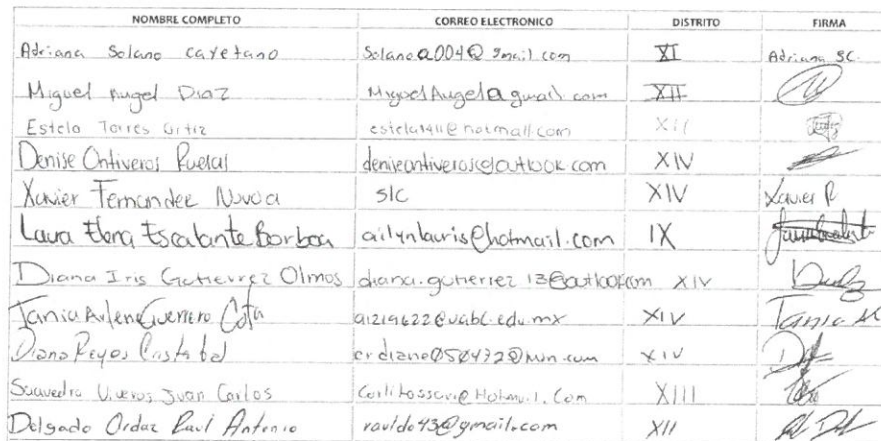 NOMBRE COMPLETO CORREO ELECTRONICO DISTRITO FIRMA
Adriana Solano cayetano Solano2004@gmail.com XI Adriana SC.
Miguel Angel Diaz MiguelAngel@gmail.com XII
Estela Torres Ortiz estela1411@hotmail.com XII
Denise Ontiveros Ruelas deniseontiveros@outlook.com XIV
Xavier Fernandez Novoa s/c XIV Xavier
Laura Elena Escalante Borboa ailynlauris@hotmail.com IX
Diana Iris Gutierrez Olmos diana.gutierrez13@outlook.com XIV
Tania Arlene Guerrero Cota a1219622@uabc.edu.mx XIV Tania
Diana Reyes Cristobal crdiane050472@msn.com XIV
Saavedra Viveros Juan Carlos XIII
Delgado Ordaz Raul Antonio rauldo43@gmail.com XII